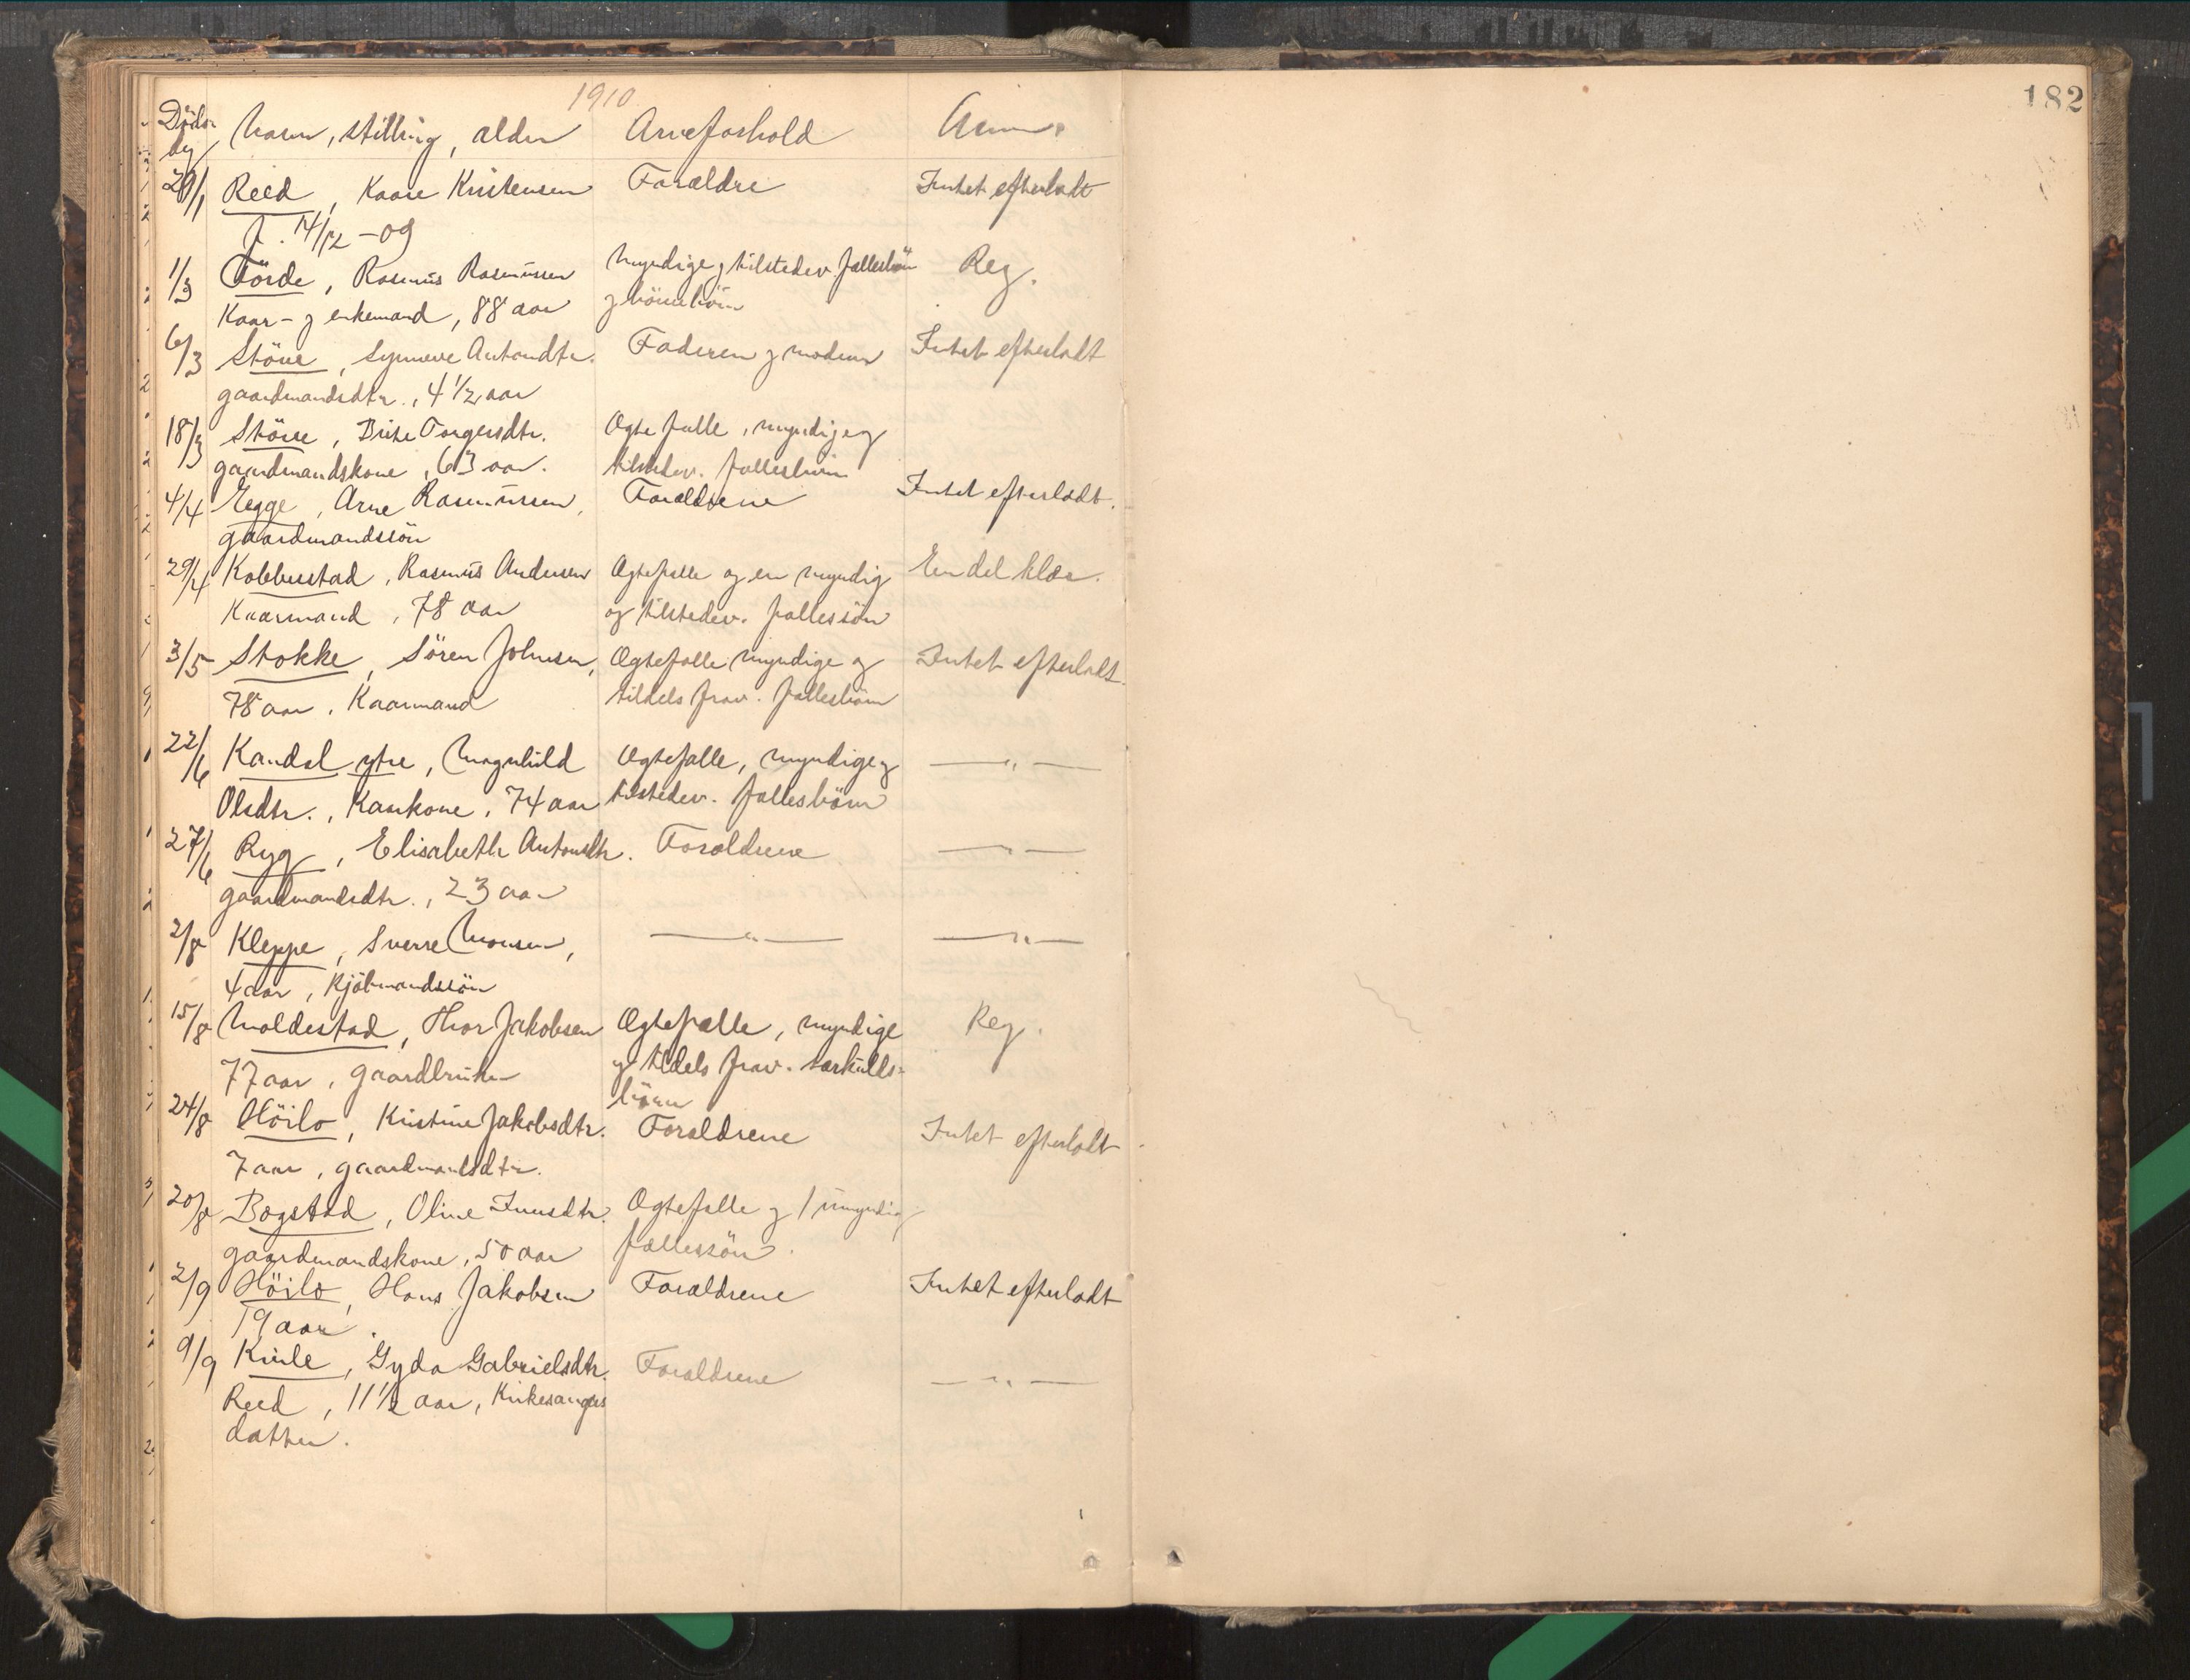 1910
182
Döds-
dag
Navn, stilling, alder
Arveforhold
Anm.
29/1
Reed, Kaare Kristensen
Forældre
Intet efterladt
f. 14/12 - 09
1/3
Förde, Rasmus Rasmussen
Myndige og tilstedev. fællesbörn
Reg.
Kaar- og enkemand, 88 aar
og börnebörn
6/3
Störe, Synneve Antondtr.
Faderen og moderen
Intet efterladt
gaardmandsdtr., 4 1/2 aar
18/3
Störe, Brite Torgersdtr.
Ægtefælle, myndige og
gaardmandskone, 63 aar.
tilstedev. fællesbörn
4/4
Egge, Arne Rasmussen,
Forældrene
Intet efterladt.
gaardmandssön
29/4
Kobberstad, Rasmus Andersen
Ægtefælle og en myndig
En del klær.
Kaarmand, 78 aar
og tilstedev. fællessön
3/5
Stokke, Sören Johnsen,
Ægtefælle myndige og
Intet efterladt.
78 aar, Kaarmand
tildels frav. fællesbörn
22/6
Kandal ytre, Magnhild
Ægtefælle, myndige og
— " —
Olsdtr., Kaarkone, 74 aar
tilstedev. fællesbörn
27/6
Ryg, Elisabeth Antondtr.
Forældrene
— " —
gaardmandsdtr., 23 aar
2/8
Kleppe, Sverre Monsen,
— " —
— " —
4 aar, Kjöbmandssön
15/8
Moldestad, Thor Jakobsen
Ægtefælle, myndige
Reg.
77 aar, gaardbruker
og tildels frav. særkulls-
börn
24/8
Höilo, Kristine Jakobsdtr.
Forældrene
Intet efterladt
7 aar, gaardmandsdtr.
20/8
Bogstad, Oline Jensdtr.
Ægtefælle og 1 umyndig
gaardmandskone, 50 aar
fællessön.
2/9
Höilo, Hans Jakobsen
Forældrene
Intet efterladt
19 aar.
9/9
Kvile, Gyda Gabrielsdtr.
Forældrene
— " —
Reed, 11 1/2 aar, Kirkesangers
datter.